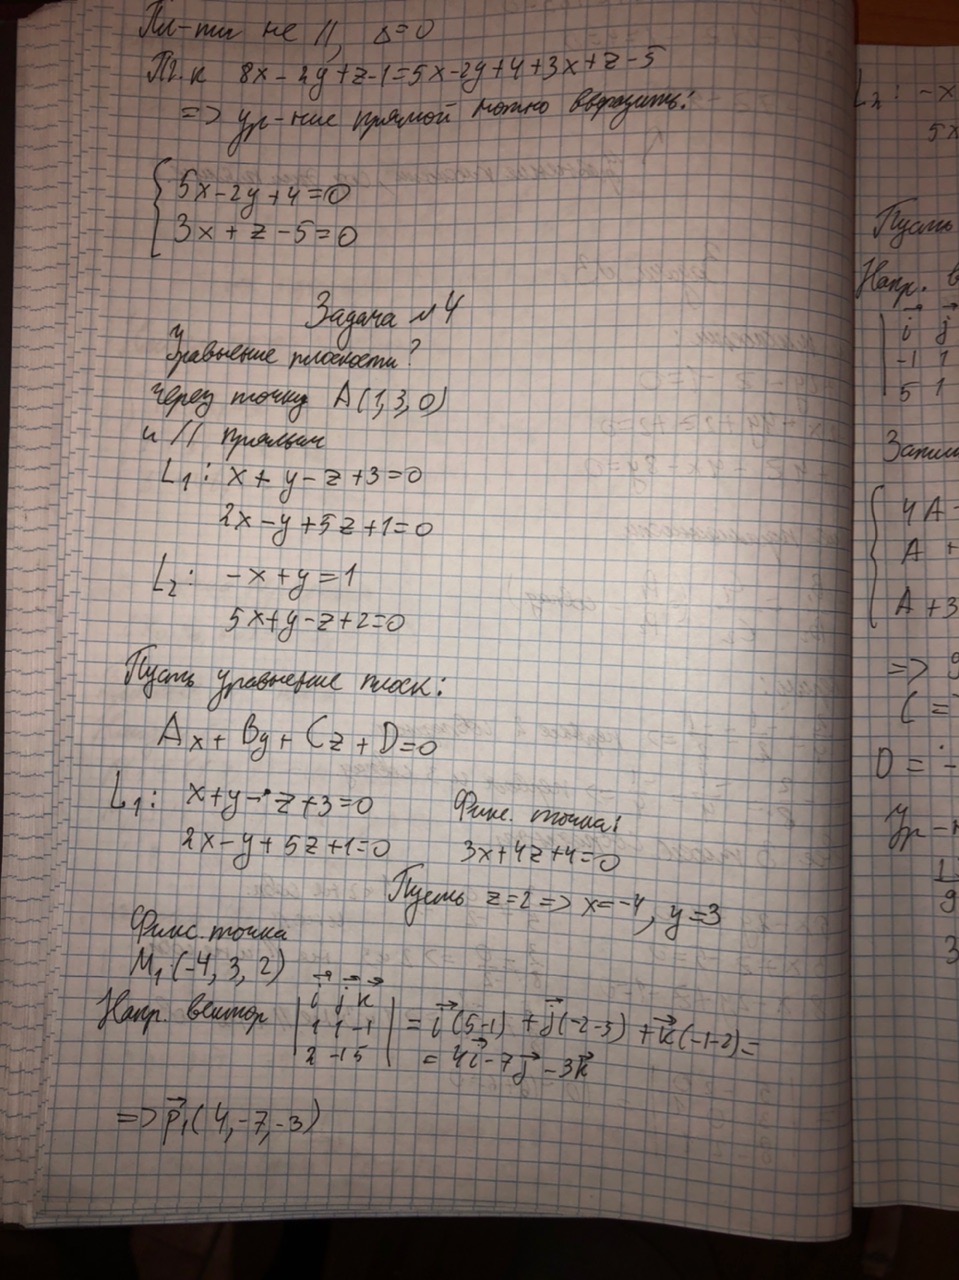 Пл-ти не //, Δ=0
Т. к 8x - 2y + z - 1 = 5x - 2y + 4 + 3x + z - 5
=> ур-ние прямой можно выразить:
5x - 2y + 4 = 0
3x + z - 5 = 0
Задача №4
Уравнение плоскости?
через точку A(1,3,0)
и // прямым
L1: x + y - z + 3 = 0
2x - y + 5z + 1 = 0
L2: -x + y = 1
5x + y - z + 2 = 0
Пусть уравнение плоск:
Ax + By + Cz + D = 0
L1: x + y - z + 3 = 0 Фикс. точка:
2x - y + 5z + 1 = 0 3x + 4z + 4 = 0
Пусть z = 2 => x = -4, y = 3
Фикс. точка
M1 (-4, 3, 2)
i j k
Напр. вектор 1 1 -1 = i(5-1) + j(-2-5) + k(-1-2) =
2 -1 5 = 4i - 7j - 3k
=> p1 (4, -7, -3)
L2: -x
5x
Пусть
Напр. в
i j
-1 1
5 1
4A
A +
A + 3
=> 9
C =
D = -
Ур-н
9
3